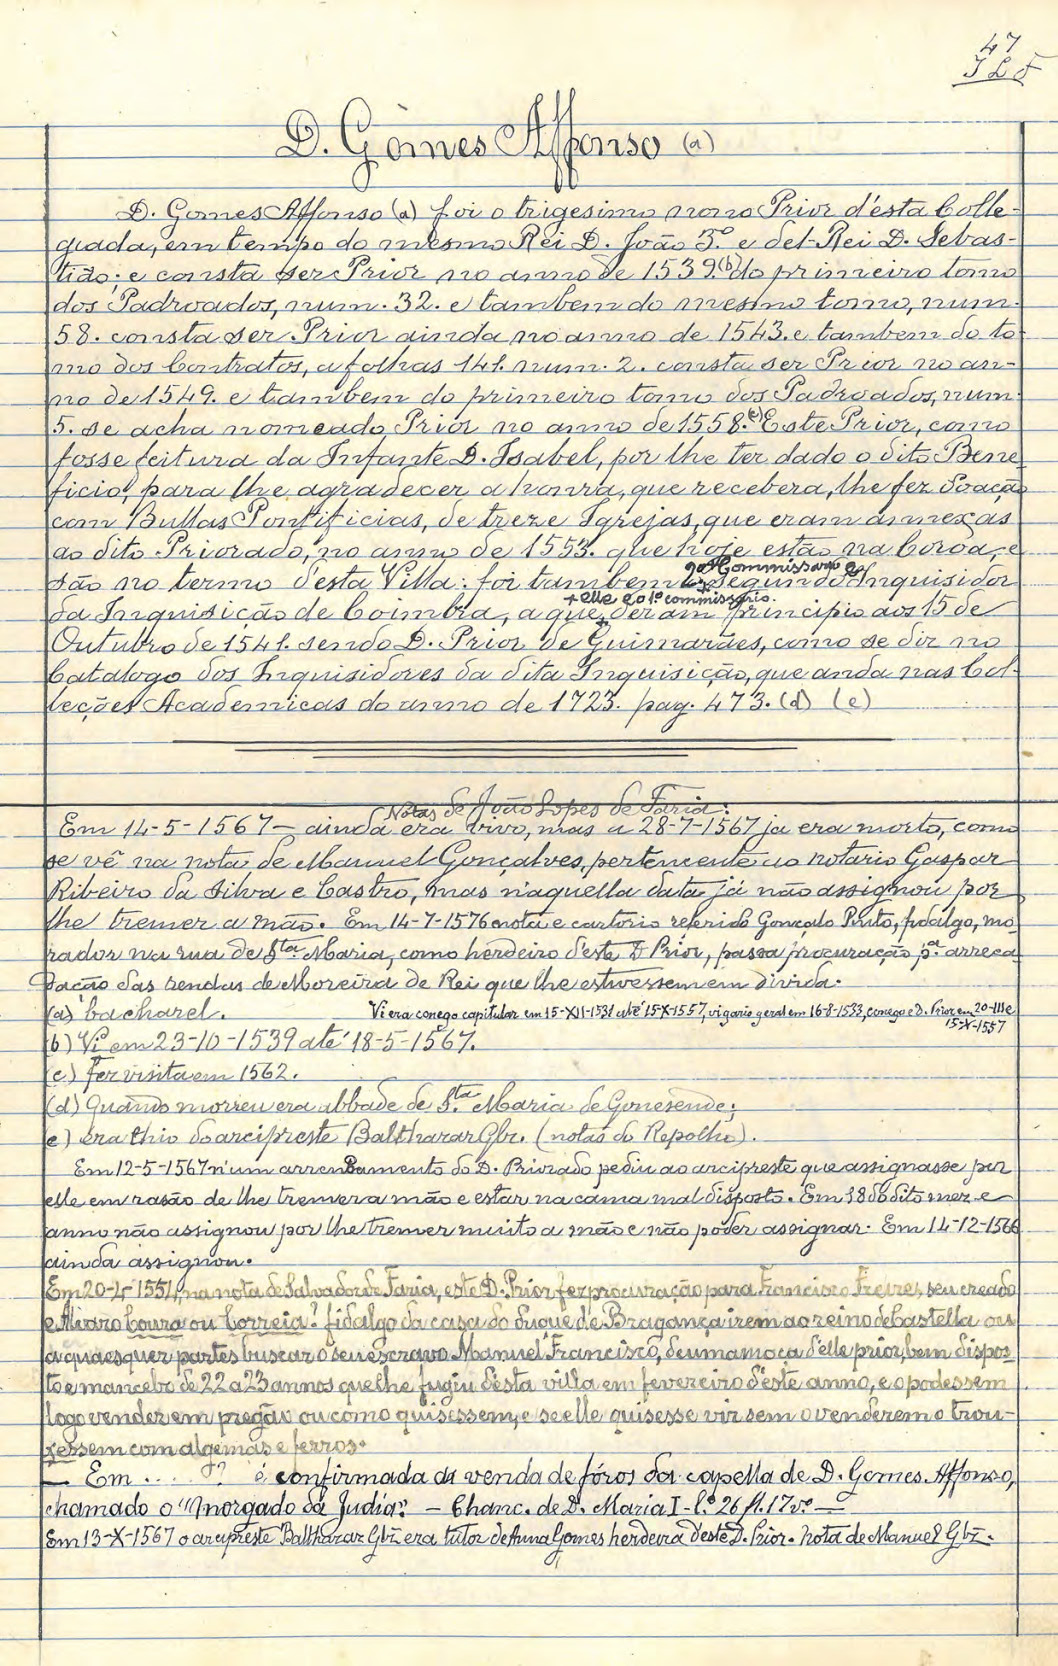 47
J L F
D. Gomes Affonso (a)
D. Gomes Affonso (a) foi o trigesimo nono Prior d'esta Colle-
giada, em tempo do mesmo Rei D. João 3.º e del-Rei D. Sebas-
tião; e consta ser Prior no anno de 1539.(b) do primeiro tomo
dos Padroados, num. 32. e tambem do mesmo tomo, num.
58. consta ser Prior ainda no anno de 1543. e tambem do to-
mo dos Contratos, a folhas 141. num. 2. consta ser Prior no an-
no de 1549. e tambem do primeiro tomo dos Padroados, num.
5. se acha nomeado Prior no anno de 1558.(c) Este Prior, como
fosse feitura da Infante D. Isabel, por lhe ter dado o dito Bene
ficio, para lhe agradecer a honra, que recebera, lhe fez doação
com Bullas Pontificias, de treze Igrejas, que eram annexas
ao dito Priorado, no anno de 1553. que hoje estão na Coroa, e
são no termo d'esta Villa: foi tambem segundo Inquisidor
2.º Commissario e
da Inquisição de Coimbra, a que deram principio aos 15 de
+ elle e o 1.º commissario.
Outubro de 1541. sendo D. Prior de Guimarães, como se diz no
Catalogo dos Inquisidores da dita Inquisição, que anda nas Col-
leções Academicas do anno de 1723. pag. 473. (d) (e)
Notas de João Lopes de Faria:
Em 14-5-1567 — ainda era vivo, mas a 28-7-1567 já era morto, como
se vê na nota de Manuel Gonçalves, pertencente ao notario Gaspar
Ribeiro da Silva e Castro, mas n'aquella data já não assignou por
lhe tremer a mão. Em 14-7-1576 nota e cartorio referido Gonçalo Pinto, fidalgo, mo-
rador na rua de S.ta Maria, como herdeiro d'este D. Prior, passa procuração p.ª arreca
dação das rendas de Moreira de Rei que lhe estivessem em divida.
(a) bacharel. Vi era conego capitular em 15-XII-1531 até 15-X-1557, vigario geral em 16-8-1533, conego e D. Prior em 20-III e
15-X-1557
(b) Vi em 23-10-1539 até 18-5-1567.
(c) Fez visita em 1562.
(d) Quando morreu era abbade de S.ta Maria de Gonesende;
e) era thio do arcipreste Balthazar Glz. (notas do Repolho).
Em 12-5-1567 n'um arrendamento do D. Priorado pediu ao arcipreste que assignasse por
elle em rasão de lhe tremer a mão e estar na cama mal disposto. Em 18 do dito mez e
anno não assignou por lhe tremer muito a mão e não poder assignar. Em 14-12-1566
ainda assignou.
Em 20-4-1551, na nota de Salvador de Faria, este D. Prior fez procuração para Francisco Freire, seu creado
e Alvaro Coura ou Correia? fidalgo da casa do duque de Bragança irem ao reino de Castella ou
a quaesquer partes buscar o seu escravo Manuel Francisco, de uma moça d'elle prior, bem dispos
to e mancebo de 22 a 23 annos que lhe fugiu d'esta villa em fevereiro d'este anno, e o podessem
logo vender em pregão ou como quisessem, e se elle quisesse vir sem o venderem o trou-
xessem com algemas e ferros.
— Em .... ? é confirmada da venda de fóros da capella de D. Gomes Affonso,
chamado o "Morgado da Judia". — Chanc. de D. Maria I - l.º 26 fl. 17 v.º —
Em 13-X-1567 o arcipreste Balthazar Glz era tutor de Anna Gomes herdeira d'este D. Prior. Nota de Manuel Glz.